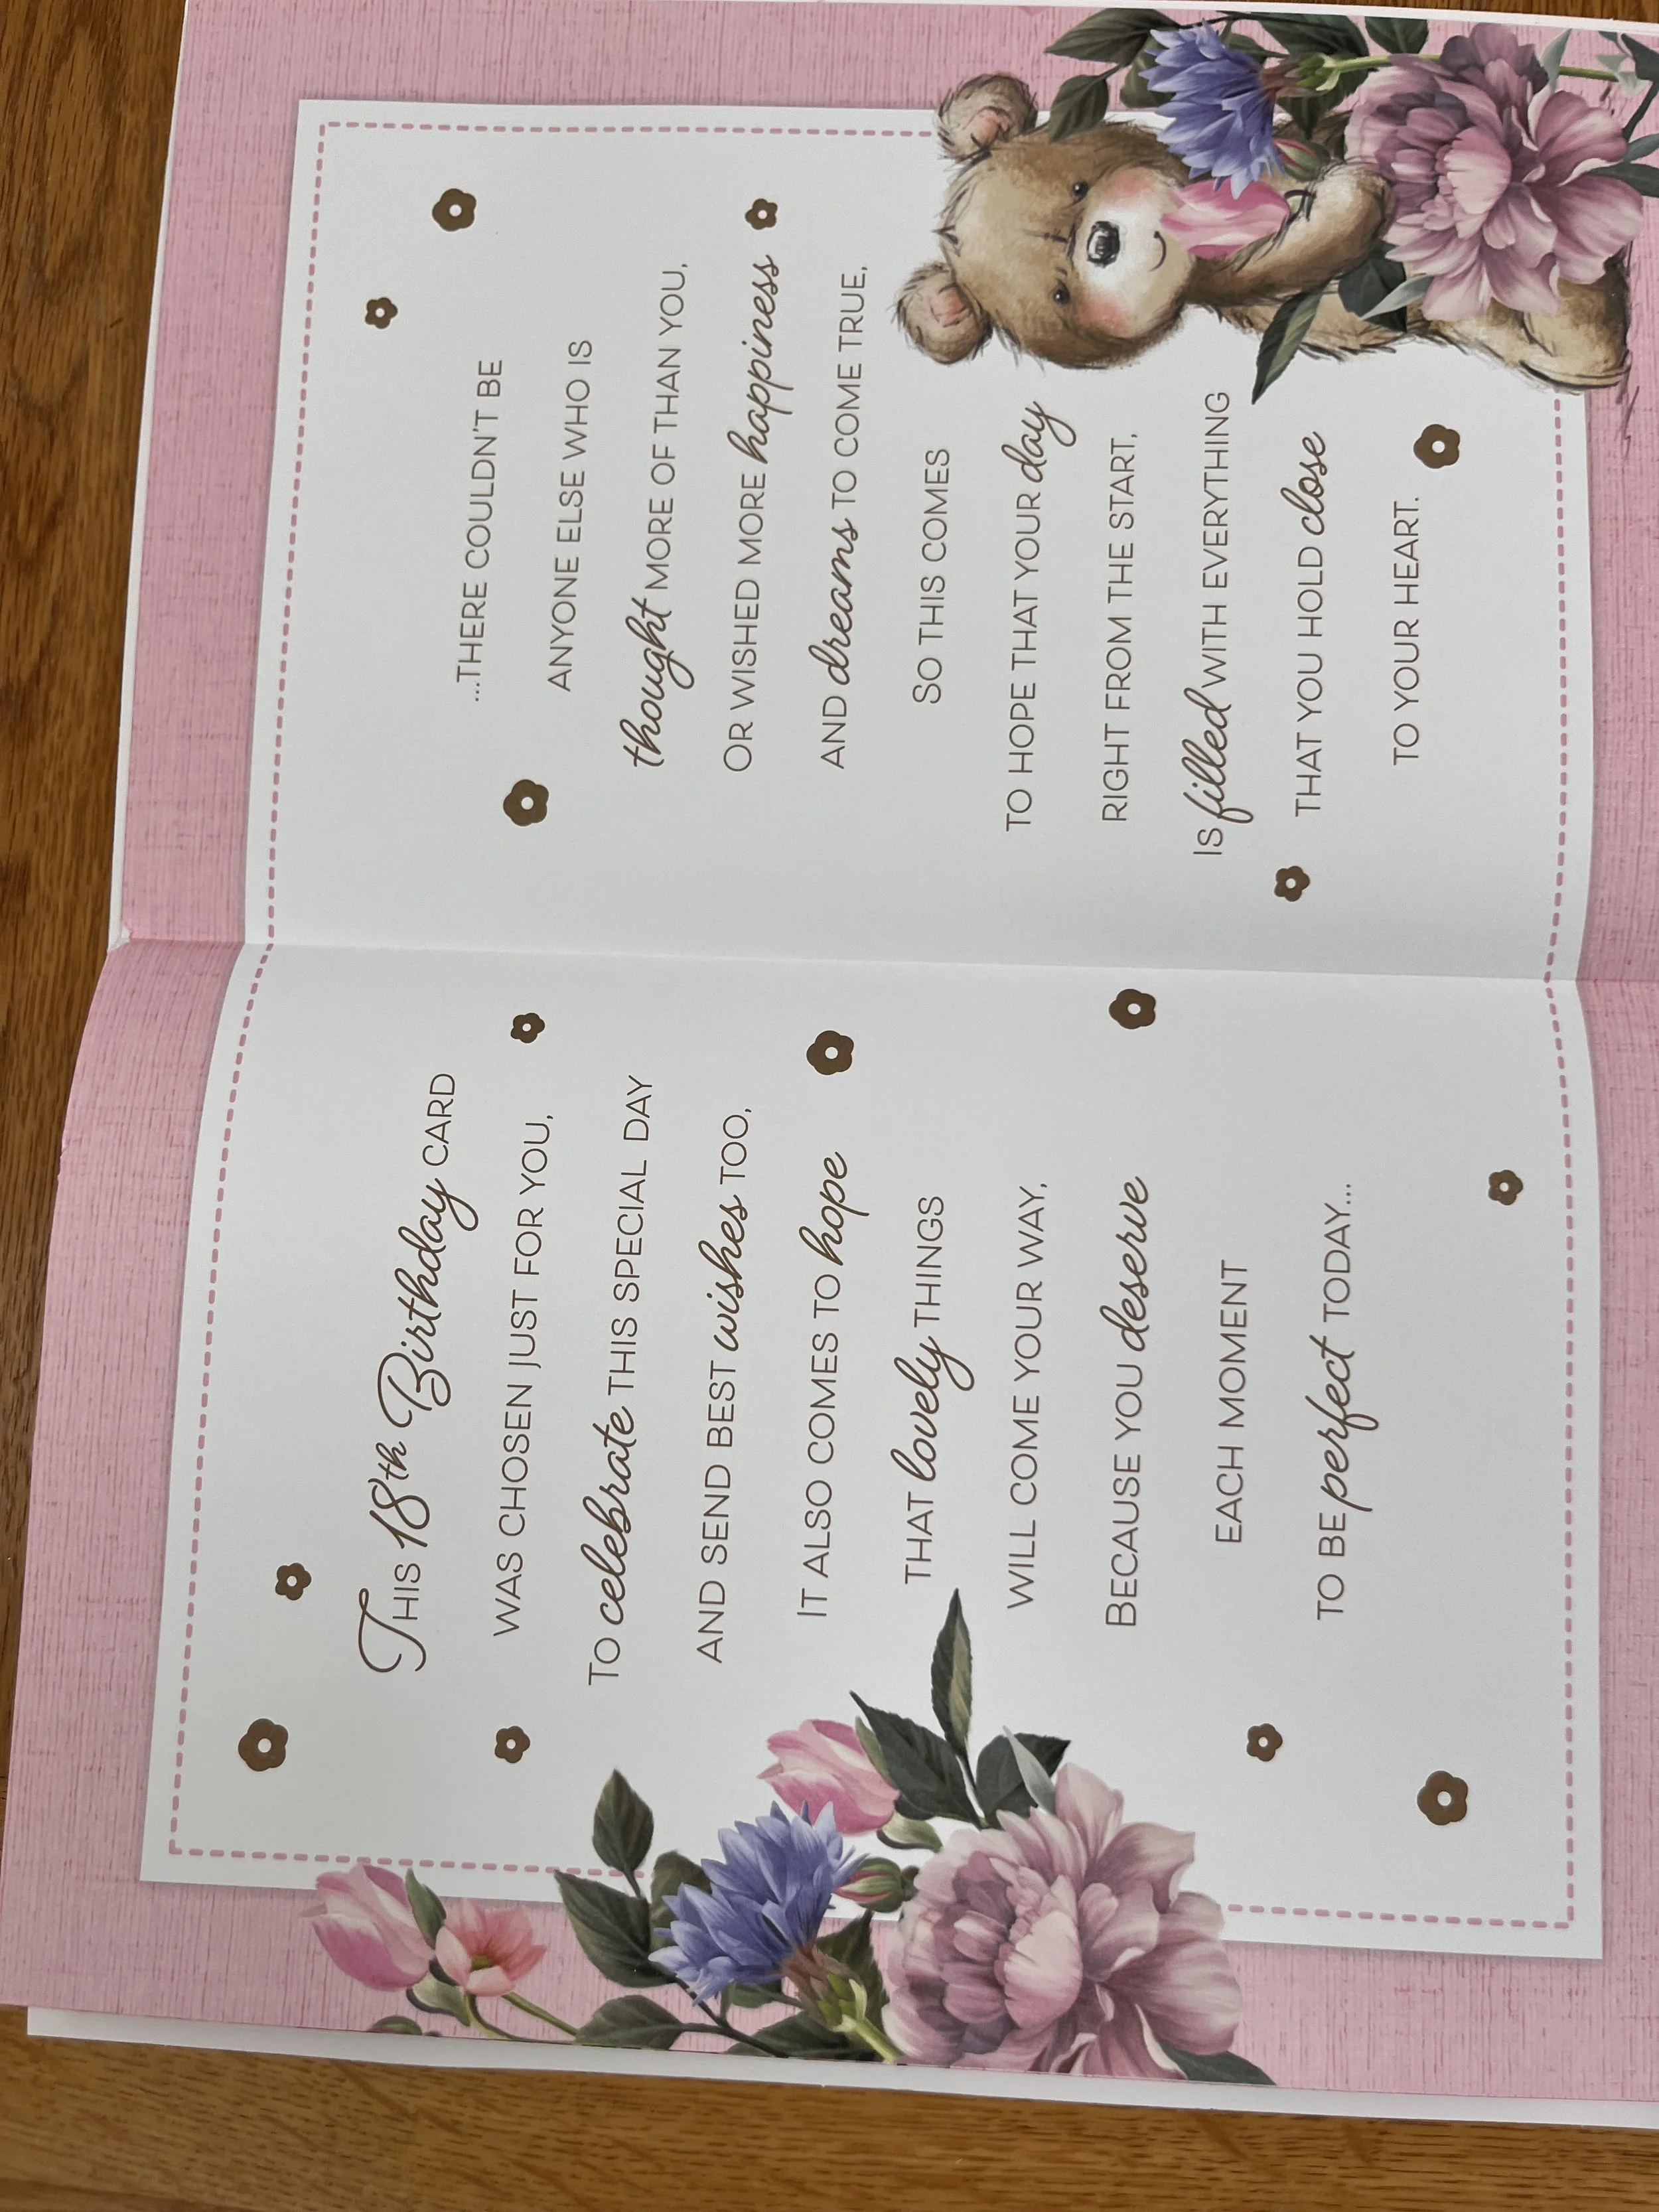 This 18th Birthday CARD
WAS CHOSEN JUST FOR YOU,
TO celebrate THIS SPECIAL DAY
AND SEND BEST wishes TOO,
IT ALSO COMES TO hope
THAT lovely THINGS
WILL COME YOUR WAY,
BECAUSE YOU deserve
EACH MOMENT
TO BE perfect TODAY...
...THERE COULDN'T BE
ANYONE ELSE WHO IS
thought MORE OF THAN YOU,
OR WISHED MORE happiness
AND dreams TO COME TRUE,
SO THIS COMES
TO HOPE THAT YOUR day
RIGHT FROM THE START,
IS filled WITH EVERYTHING
THAT YOU HOLD close
TO YOUR HEART.